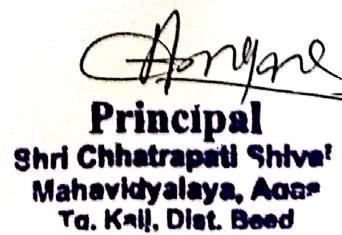 Principal
Shri Chhatrapati Shivaji
Mahavidyalaya,
Tq. Kaij, Dist. Beed